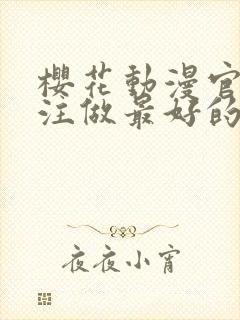 櫻花動漫官
注做最好的
夜夜小宵